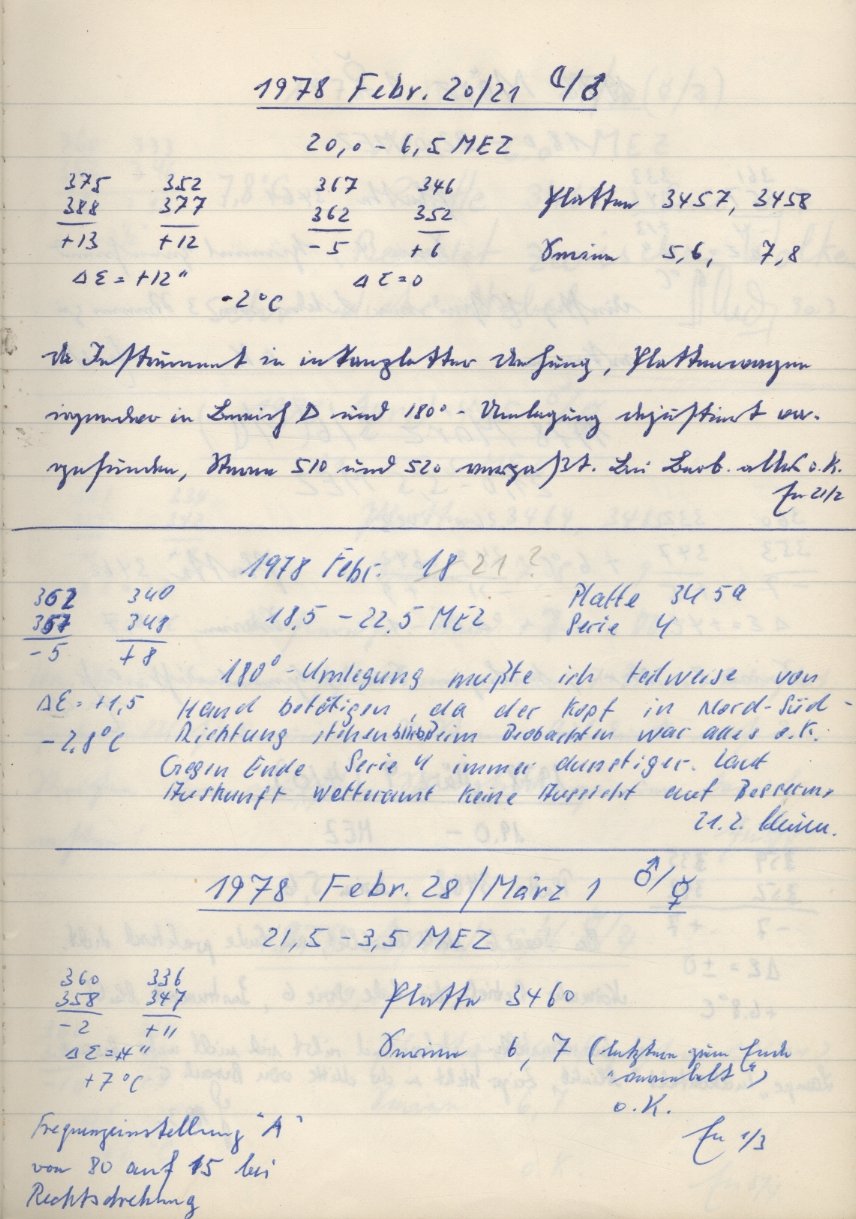 1978 Febr. 20/21 ☾/♂
20,0 – 6,5 MEZ
375 352 367 346
388 377 362 352 Platten 3457, 3458
+13 +12 -5 +6 Serien 5,6, 7,8
Δε = +12" Δε = 0
-2°C
Instrument in Drehung, Plattenwagen
in Bereich D und 180° - Umlegung dejustiert vor-
gefunden, Sterne 510 und 520 verpaßt. Bei Beob. alles o.K.
21/2
1978 Febr. 18 21 ?
362 340 Platte 3459
357 348 18,5 – 22,5 MEZ Serie 4
-5 +8
180°-Umlegung mußte ich teilweise von
Δε = +1,5 Hand betätigen, da der Kopf in Nord-Süd-
-2,8°C Richtung Beim Beobachten war alles o.K.
Gegen Ende Serie 4 immer dunstiger. Laut
Auskunft Wetteramt keine Aussicht auf
21.2.
1978 Febr. 28/März 1 ♂/☿
21,5 – 3,5 MEZ
360 336
358 347 Platte 3460
-2 +11
Δε = 4" Serien 6, 7 (letztere zum Ende
+7°C
o.K.
Frequenzeinstellung "A" 1/3
von 80 auf 15 bei
Rechtsdrehung